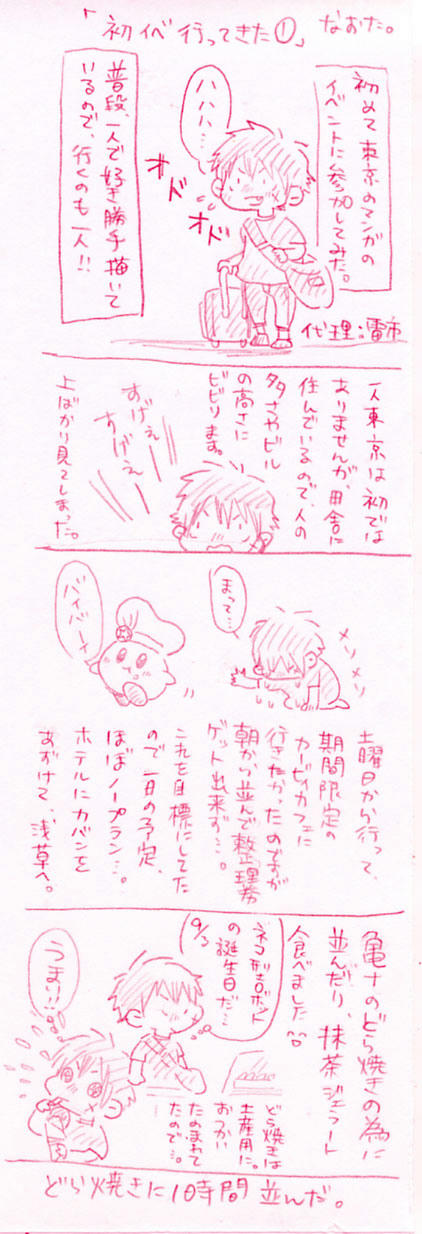 「初イベ行ってきた①」なおた。
初めて東京のマンガの
イベントに参加してみた。
ハハハ…
オド
オド
普段、一人で好き勝手描いて
いるので、行くのも一人!!
代理:雷市
一人東京は初では
ありませんが、田舎に
住んでいるので、人の
多さやビル
の高さに
ビビります。
すげぇ
すげぇ
上ばかり見てしまった。
メソ
メソ
まって…
バイバーイ
土曜日から行って、
期間限定の
カービィカフェに
行きたかったのですが
朝から並んで整理券
ゲット出来ず…。
これを目標にしてた
ので一日の予定、
ほぼノープラン…。
ホテルにカバンを
あずけて、浅草へ。
亀十のどら焼きの為に
並んだり、抹茶ジェラート
食べました^^
9/3
ネコ型ロボット
の誕生日だ…
うまい!!
どら焼きは
土産用に。
おつかい
たのまれて
たので…。
どら焼きに1時間並んだ。